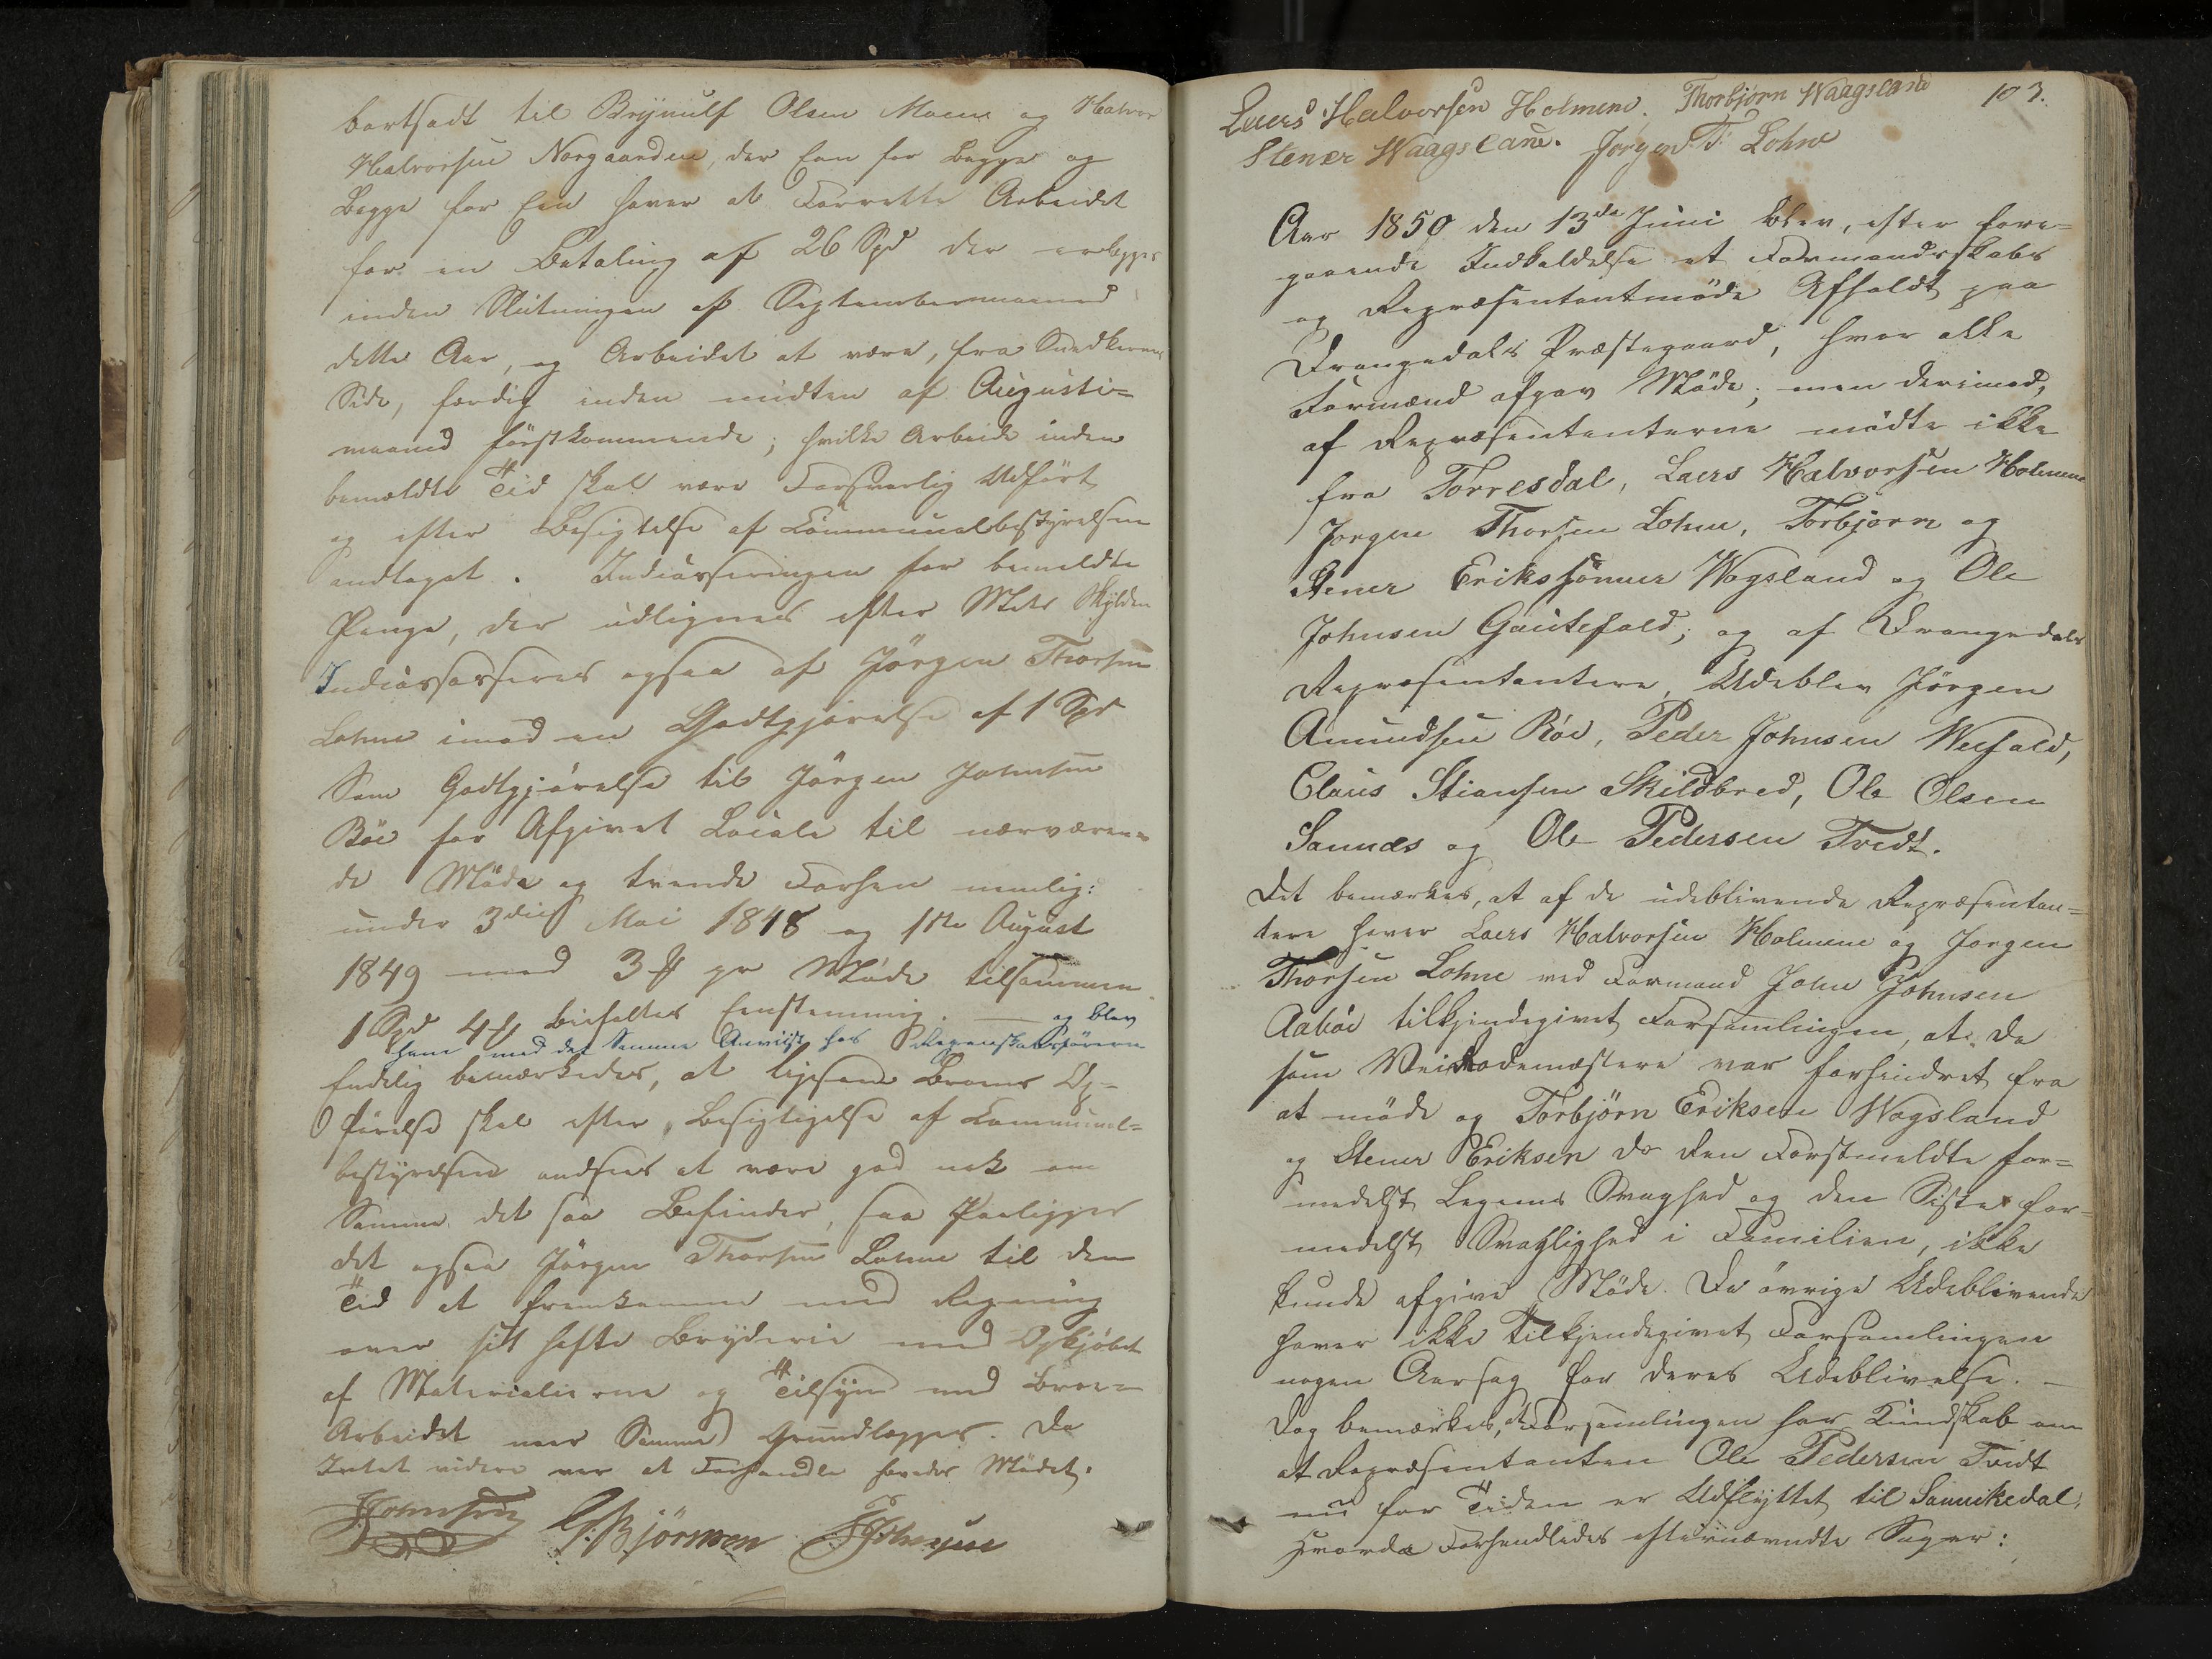 bortsadt til Brynulf Olsen Moen og Halvor
Halvorsen Norgaarden, der Een for Begge og
Begge for Een haver at Forrette Arbeidet
for en Betaling af 26 Spd der erlægges
inden Slutningen af Septembermaaned
dette Aar, og Arbeidet at være, fra Snedkernes
Side, færdig inden midten af Augusti=
maaned förstkommende; hvilke Arbeide inden
bemældte Tid skal være Forsvarlig Udfört
og efter Besigtelse af Communalbestyrelsen
andtaget. Indcasseringen for bemeldte
Penge, der udlignes efter Matr Skylden
Indcassesseres ogsaa af Jörgen Thorsen
Lohne imod en Godtgjörelse af 1 Spd
Som Godtgjörelse til Jörgen Johnsen
Böe for Afgivet Locale til nærværen=
de Möde og tvende Forhen nemlig:
under 3die Mai 1848 og 1ste August
1849 med 3 ß pr Möde tilsammen
1 Spd 4 ß bifaltes Eenstemmig. — og blev
ham med det Samme Anviist hos Regnskabsföreren
Endelig bemærkedes, at ligesom Broens Op=
förelse skal efter Besigtigelse af Communal=
bestyrelsen andsees at være god nok om
Samme det saa Befinder, saa Paaligger
det ogsaa Jörgen Thorsen Lohne til den
Tid at fremkomme med Regning
over sit hafte Bryderie med Opkjöbet
af Materialierne og Tilsyn med Broe=
Arbeidet naar Samme Grundlægges. Da
Intet videre var at Forhandle hævedes Mödet.
JJohnsen G. Björnsen JJohnsen
103.
Laers Halvorsen Holmene. Thorbjørn Waagsland
Stener Waagsland. Jørgen T. Lohne
Aar 1850 den 13de Juni blev, efter fore=
gaaende Indkaldelse et Formandskabs
og Repræsentantmöde Afholdt paa
Drangedals Præstegaard, hvor alle
Formænd afgav Möde; men derimod,
af Repræsentanterne mödte ikke
fra Torresdal, Laers Halvorsen Holmene
Jorgen Thorsen Lohne, Torbjörn og
Stener Erikssönner Wogsland og Ole
Johnsen Gautefald; og af Drangedals
Repræsentantere, Udeblev Jörgen
Amundsen Böe, Peder Johnsen Weefald,
Claus Stiansen Skildbred, Ole Olsen
Sannæs og Ole Pedersen Tvedt.
Det bemærkes, at af de udeblivende Repræsentan=
tere haver Laers Halvorsen Holmene og Jorgen
Thorsen Lohne ved Formand John Johnsen
Aaböe tilkjendegivet Forsamlingen, at de
som Veirodemæstere var forhindret fra
at möde og Torbjörn Eriksen Wogsland
og Stener Eriksen do den Forstmeldte for=
medelst Legems Svaghed og den Siste for=
medelst Svaglighed i Familien, ikke
kunde afgive Möde. De övrige Udeblivende
haver ikke Tilkjendegivet Forsamlingen
nogen Aarsag for deres Udeblivelse. —
Dog bemærkes, at Forsamlingen har Kundskab om
at Repræsentanten Ole Pedersen Tvedt
nu for Tiden er Udflyttet til Sannikedal.
Hvorda Forhandledes efternævndte Sager: